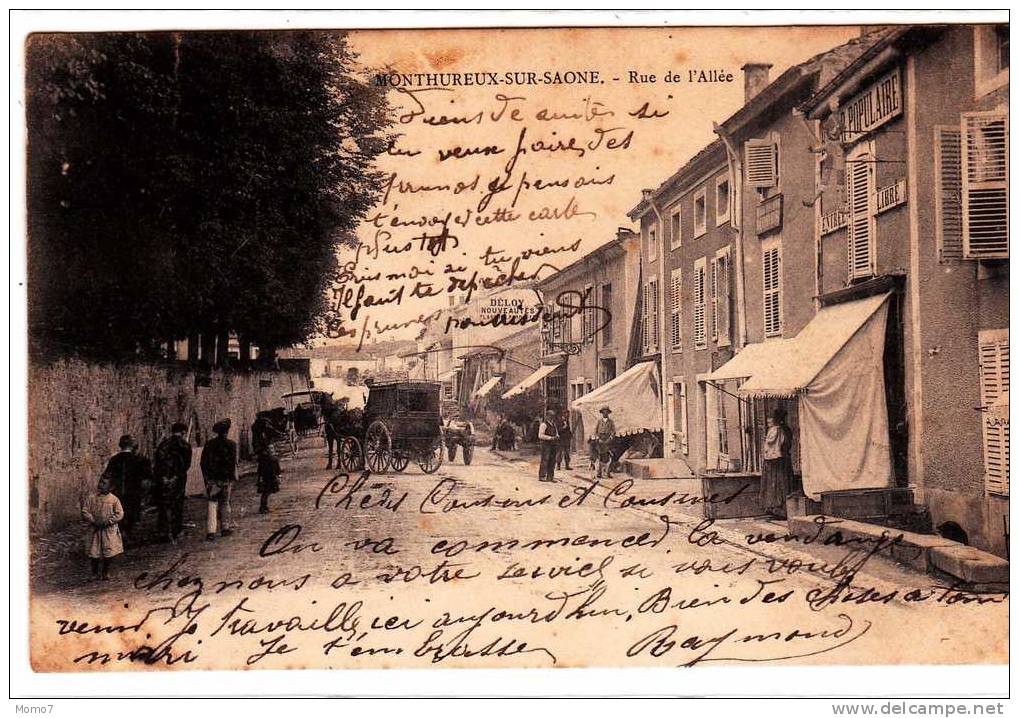 MONTHUREUX-SUR-SAONE. - Rue de l'Allée
Viens de suite si
tu veux faire des
prunes je pensais
t'envoyer cette carte
plustot
Ecris moi si tu viens
Il faut te depêcher
les prunes
POPULAIRE
LIBRE
ENTRÉE
DÉLOY
NOUVEAUTÉS
Chers Cousins et Cousines
On va commencer la vendange
chez nous a votre service si vous voulez
venir Je travaille ici aujourd'hui, Bien des choses a ton
mari Je t'embrasse Raymond
Momo7
www.delcampe.net